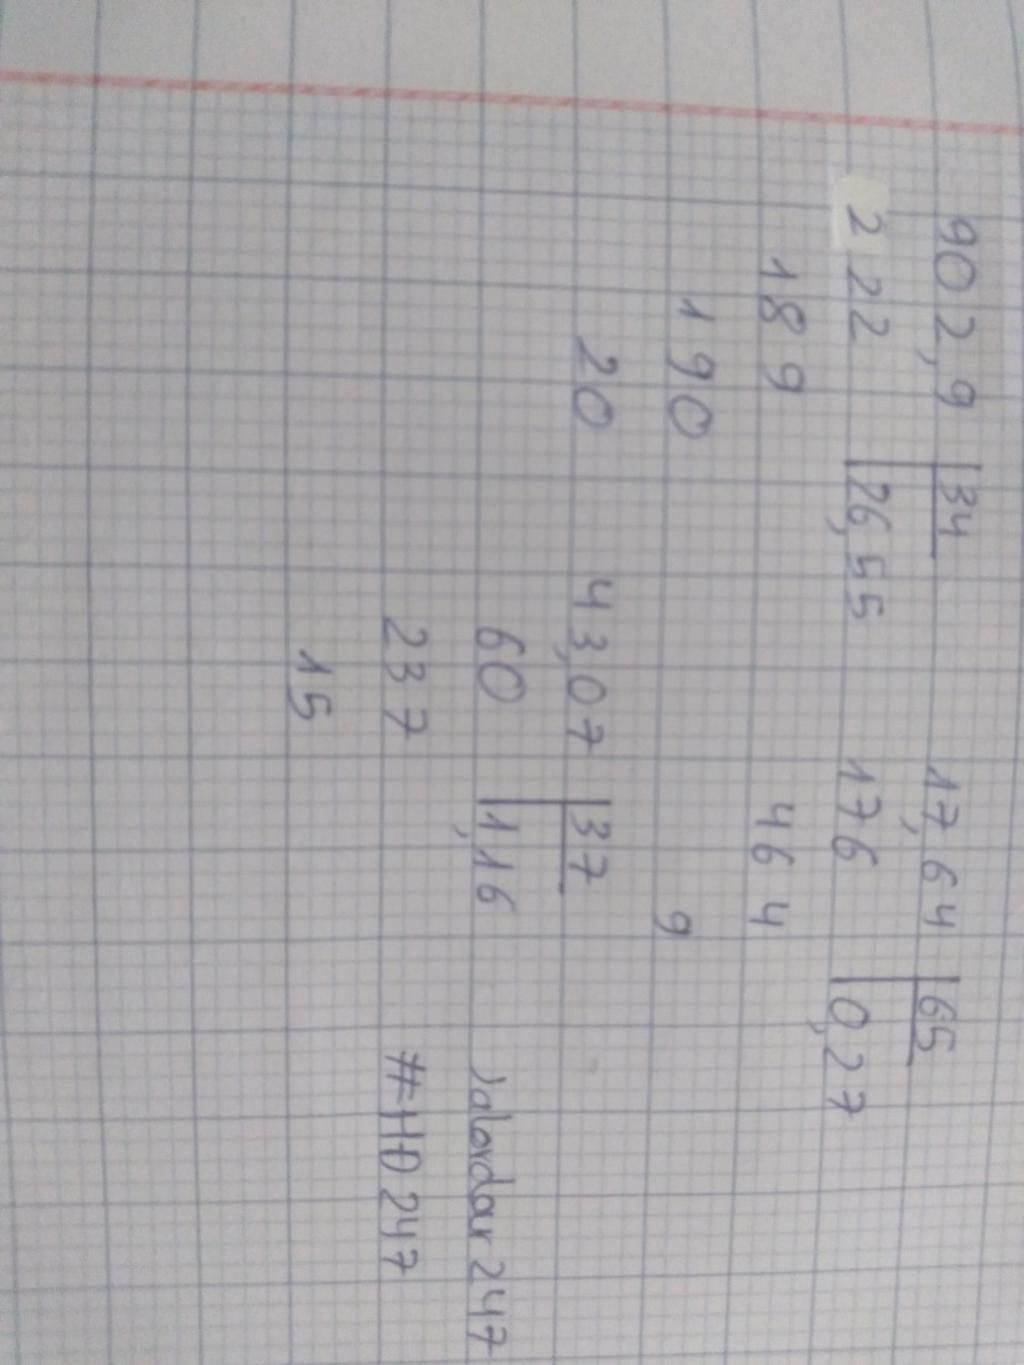 902,9 |34
2 22 |26,55
189
190
20
17,64 |65
176 |0,27
464
9
43,07 |37
60 |1,16
237
15
Jalordar247
#HD247